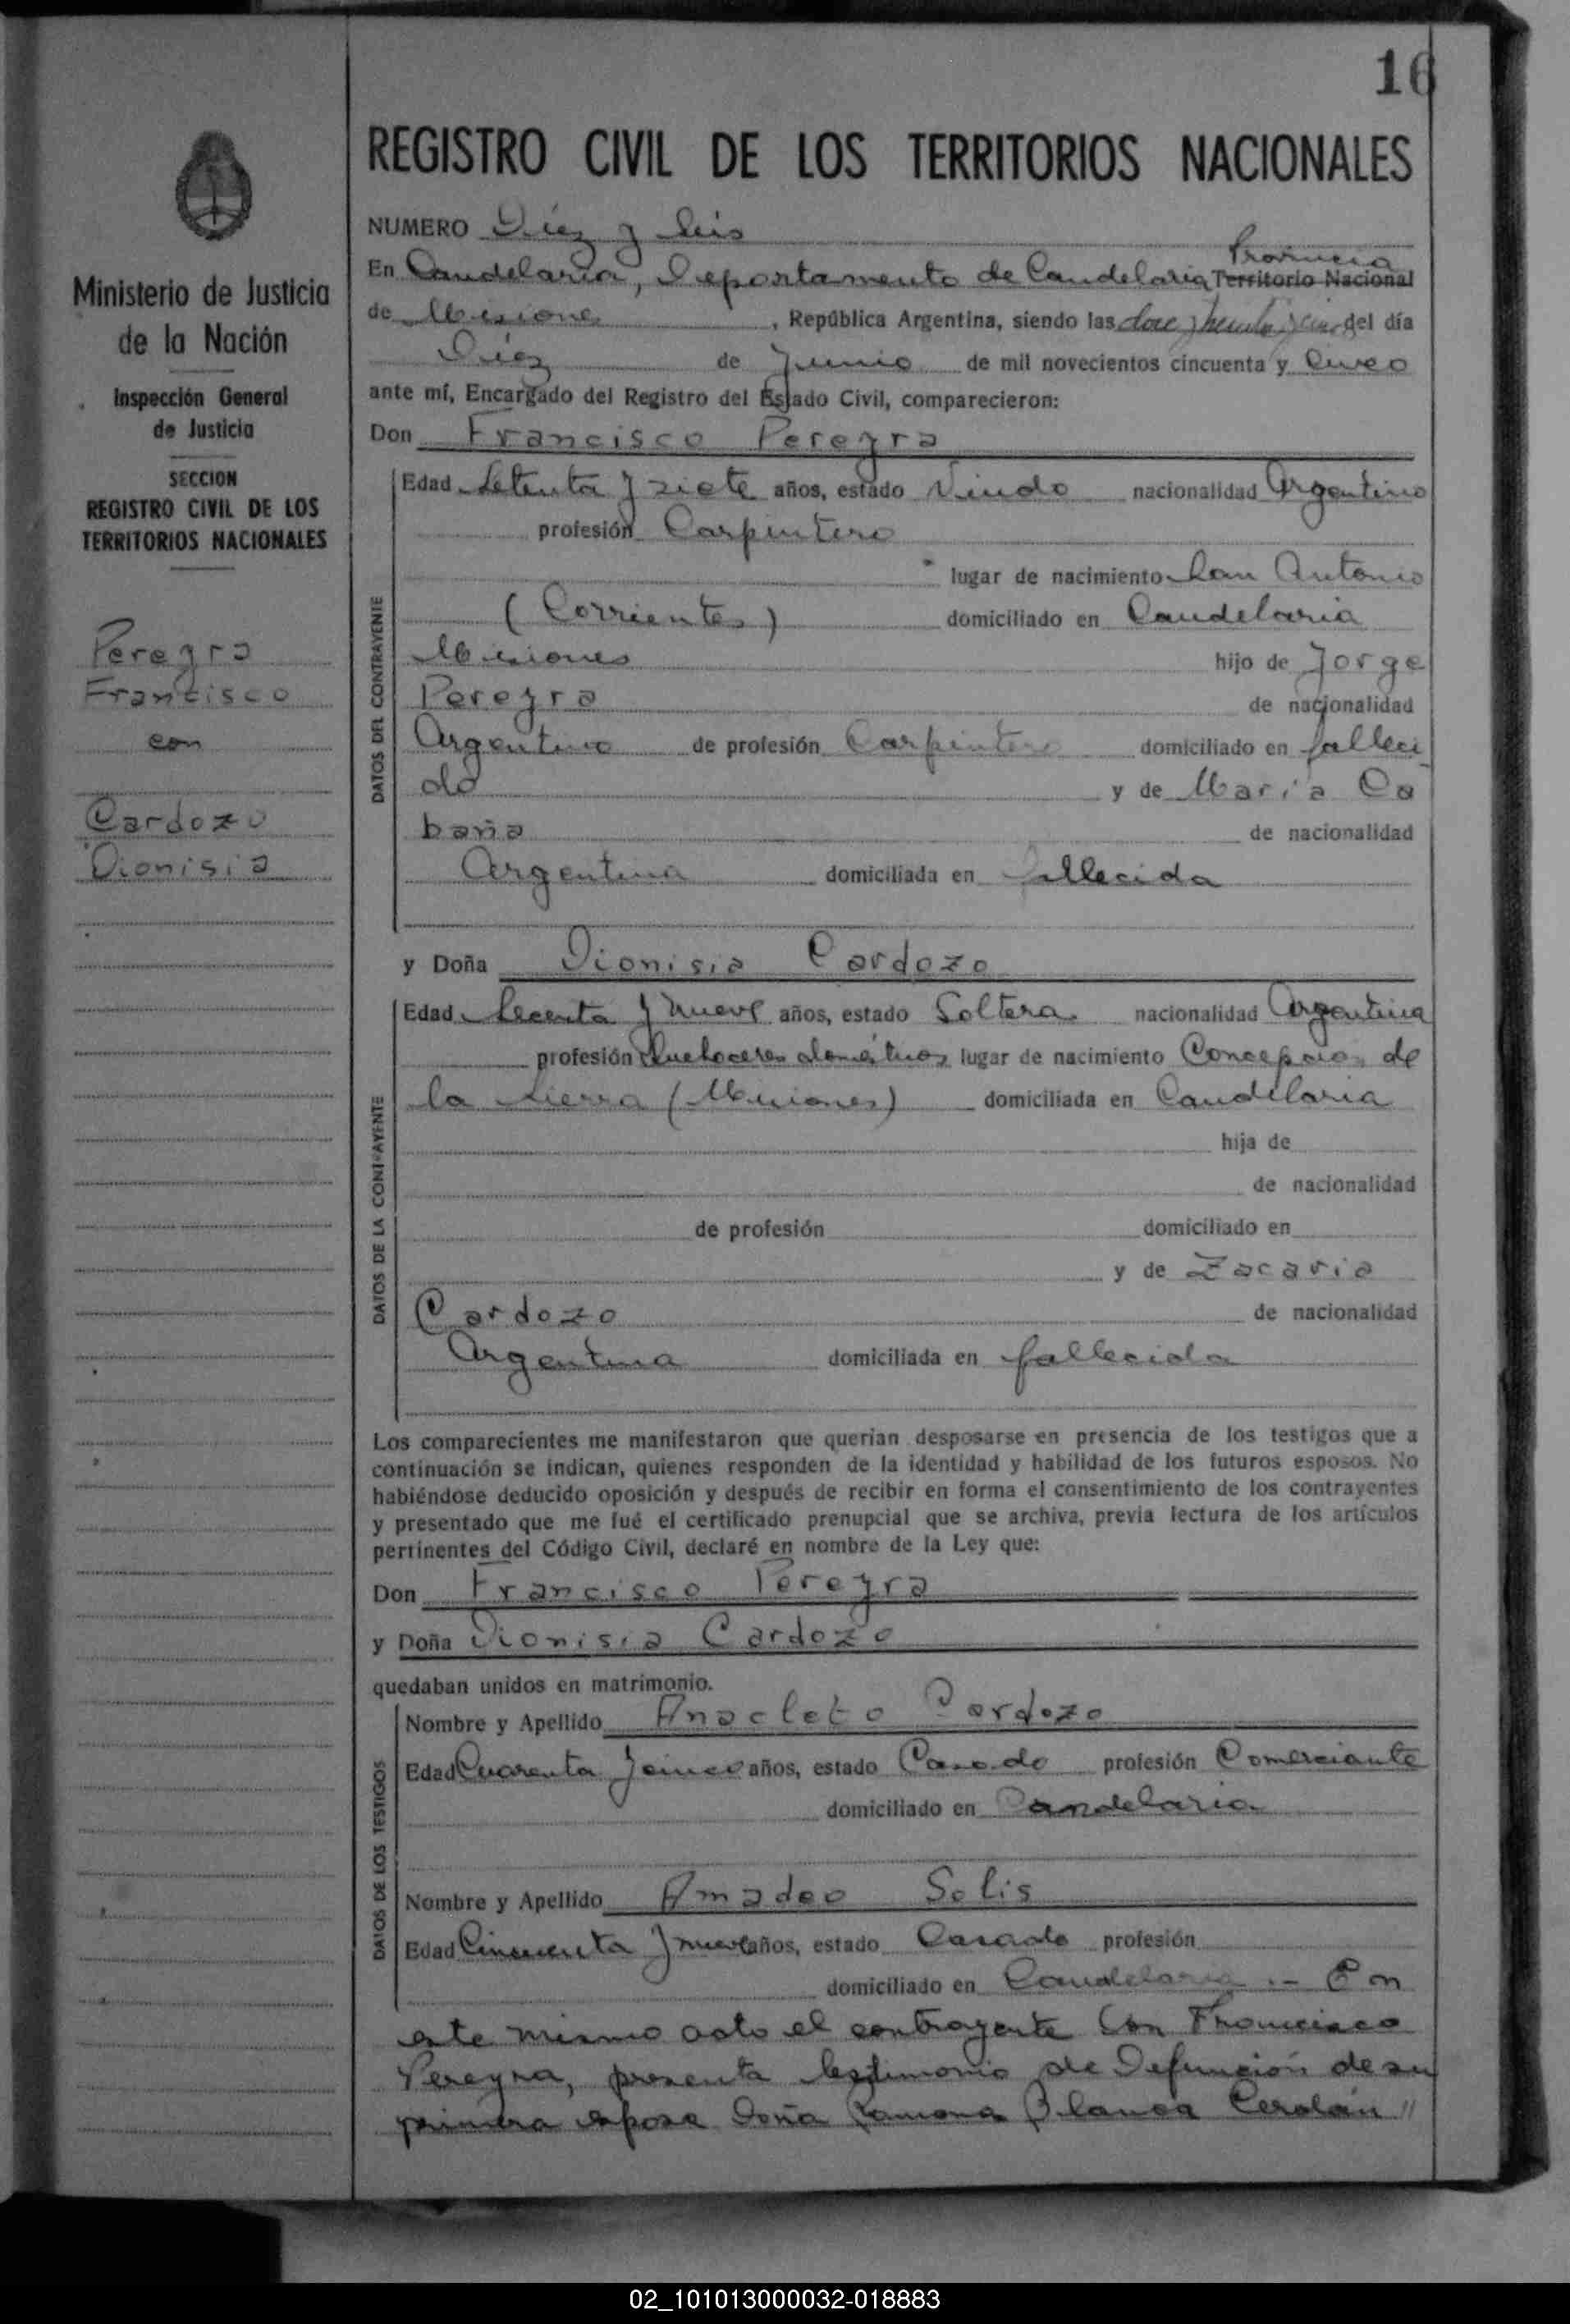 16
REGISTRO CIVIL DE LOS TERRITORIOS NACIONALES
Ministerio de Justicia
de la Nación
Inspección General
de Justicia
SECCION
REGISTRO CIVIL DE LOS
TERRITORIOS NACIONALES
Pereyra
Francisco
con
Cardozo
Dionisia
NUMERO Diez y seis
Provincia
En Candelaria, Departamento de Candelaria Territorio Nacional
de Misiones, República Argentina, siendo las doce y del día
Diez de Junio de mil novecientos cincuenta y Cinco
ante mí, Encargado del Registro del Estado Civil, comparecieron:
Don Francisco Pereyra
DATOS DEL CONTRAYENTE
Edad Setenta y siete años, estado Viudo nacionalidad Argentino
profesión Carpintero
lugar de nacimiento San Antonio
(Corrientes) domiciliado en Candelaria
Misiones hijo de Jorge
Pereyra de nacionalidad
Argentino de profesión Carpintero domiciliado en falleci
do y de María Ca
baña de nacionalidad
Argentina domiciliada en fallecida
y Doña Dionisia Cardozo
DATOS DE LA CONTRAYENTE
Edad Secenta y nueve años, estado Soltera nacionalidad Argentina
profesión Quehaceres domésticos lugar de nacimiento Concepción de
la Sierra (Misiones) domiciliada en Candelaria
hija de
de nacionalidad
de profesión domiciliado en
y de Zacaria
Cardozo de nacionalidad
Argentina domiciliada en fallecida
Los comparecientes me manifestaron que querían desposarse en presencia de los testigos que a
continuación se indican, quienes responden de la identidad y habilidad de los futuros esposos. No
habiéndose deducido oposición y después de recibir en forma el consentimiento de los contrayentes
y presentado que me fué el certificado prenupcial que se archiva, previa lectura de los artículos
pertinentes del Código Civil, declaré en nombre de la Ley que:
Don Francisco Pereyra
y Doña Dionisia Cardozo
quedaban unidos en matrimonio.
DATOS DE LOS TESTIGOS
Nombre y Apellido Anacleto Cardozo
Edad Cuarenta y cinco años, estado Casado profesión Comerciante
domiciliado en Candelaria
Nombre y Apellido Amadeo Solis
Edad Cincuenta y nueve años, estado Casado profesión
domiciliado en Candelaria .- En
este mismo acto el contrayente Don Francisco
Pereyra, presenta testimonio de Defunción de su
primera esposa Doña Ramona Blanca "
02_101013000032-018883